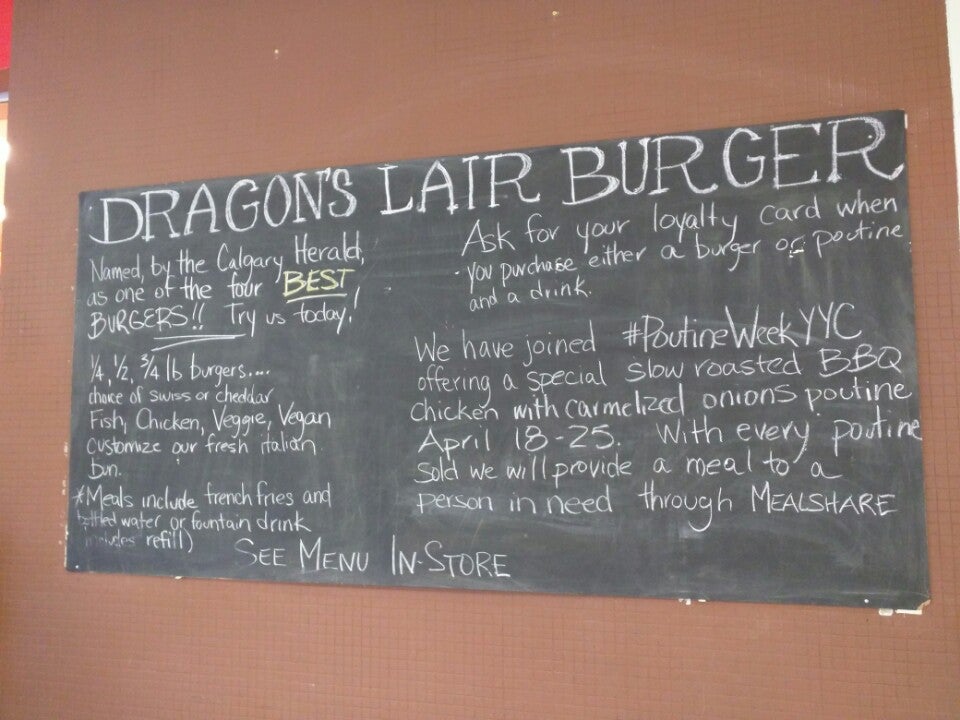 DRAGON'S LAIR BURGER
Named, by the Calgary Herald,
as one of the four BEST
BURGERS!! Try us today!
1/4, 1/2, 3/4 lb burgers....
choice of swiss or cheddar
Fish, Chicken, Veggie, Vegan
customize our fresh italian
bun.
*Meals include french fries and
bottled water or fountain drink
includes refill)
Ask for your loyalty card when
you purchase either a burger or poutine
and a drink.
We have joined #PoutineWeekYYC
offering a special slow roasted BBQ
chicken with carmelized onions poutine
April 18-25. With every poutine
sold we will provide a meal to a
person in need through MEALSHARE
SEE MENU IN-STORE